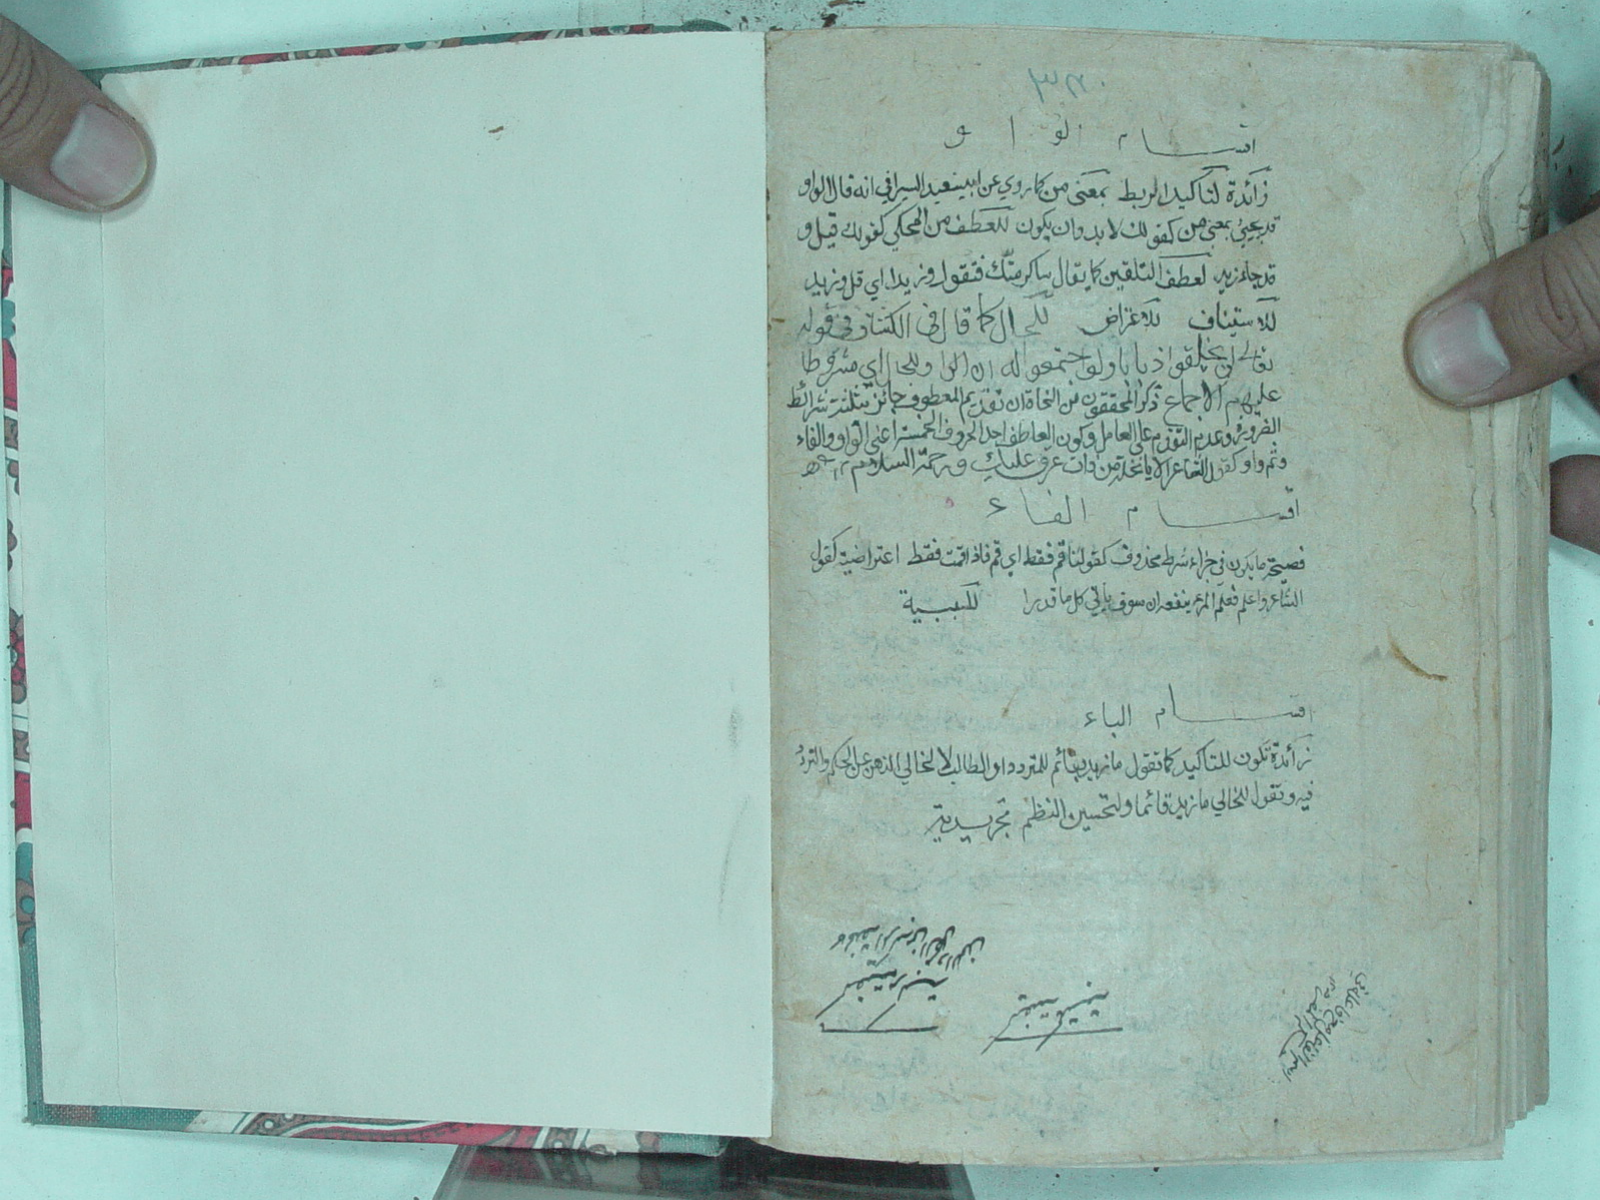 اقسام الواو
زائدة لتأكيد الربط بمعنى من كما روي عن ابي سعيد السيرافي انه قال الواو
قد يجيئ بمعنى من كقولك لا بد وان يكون للعطف من المحكي كقولك قيل و
قد جاء زيد لعطف التلقين كما يقال ساكرمتك فتقول وزيدا اي قل وزيد
للاستيناف للاعتراض للحال كما قال في الكشاف في قوله
تعالى لن يخلقوا ذبابا ولو اجتمعوا له ان الواو للحال اي مشروطا
عليهم الاجماع ذكر المحققون من النحاة ان تقديم المعطوف جائز بثلثة شرائط
الضرورة وعدم التقدم على العامل وكون العاطف احد الحروف الخمسة اعني الواو والفاء
وثم واو كقول الشاعر الا يا نخلة من ذات عرق عليك ورحمة السلام
اقسام الفاء
فصيحة ما يكون في جزاء شرط محذوف كقولنا قم فقط اي قم فاذا قمت فقط اعتراضية كقول
الشاعر واعلم فعلم المرء ينفعه ان سوف يأتي كل ما قدرا للسببية
اقسام الباء
زائدة تكون للتاكيد كما تقول ما زيد بقائم للمتردد او الطالب لا لخالي الذهن عن الحكم والتردد
فيه وتقول للخالي ما زيد قائما ولتحسين النظم تجريدية